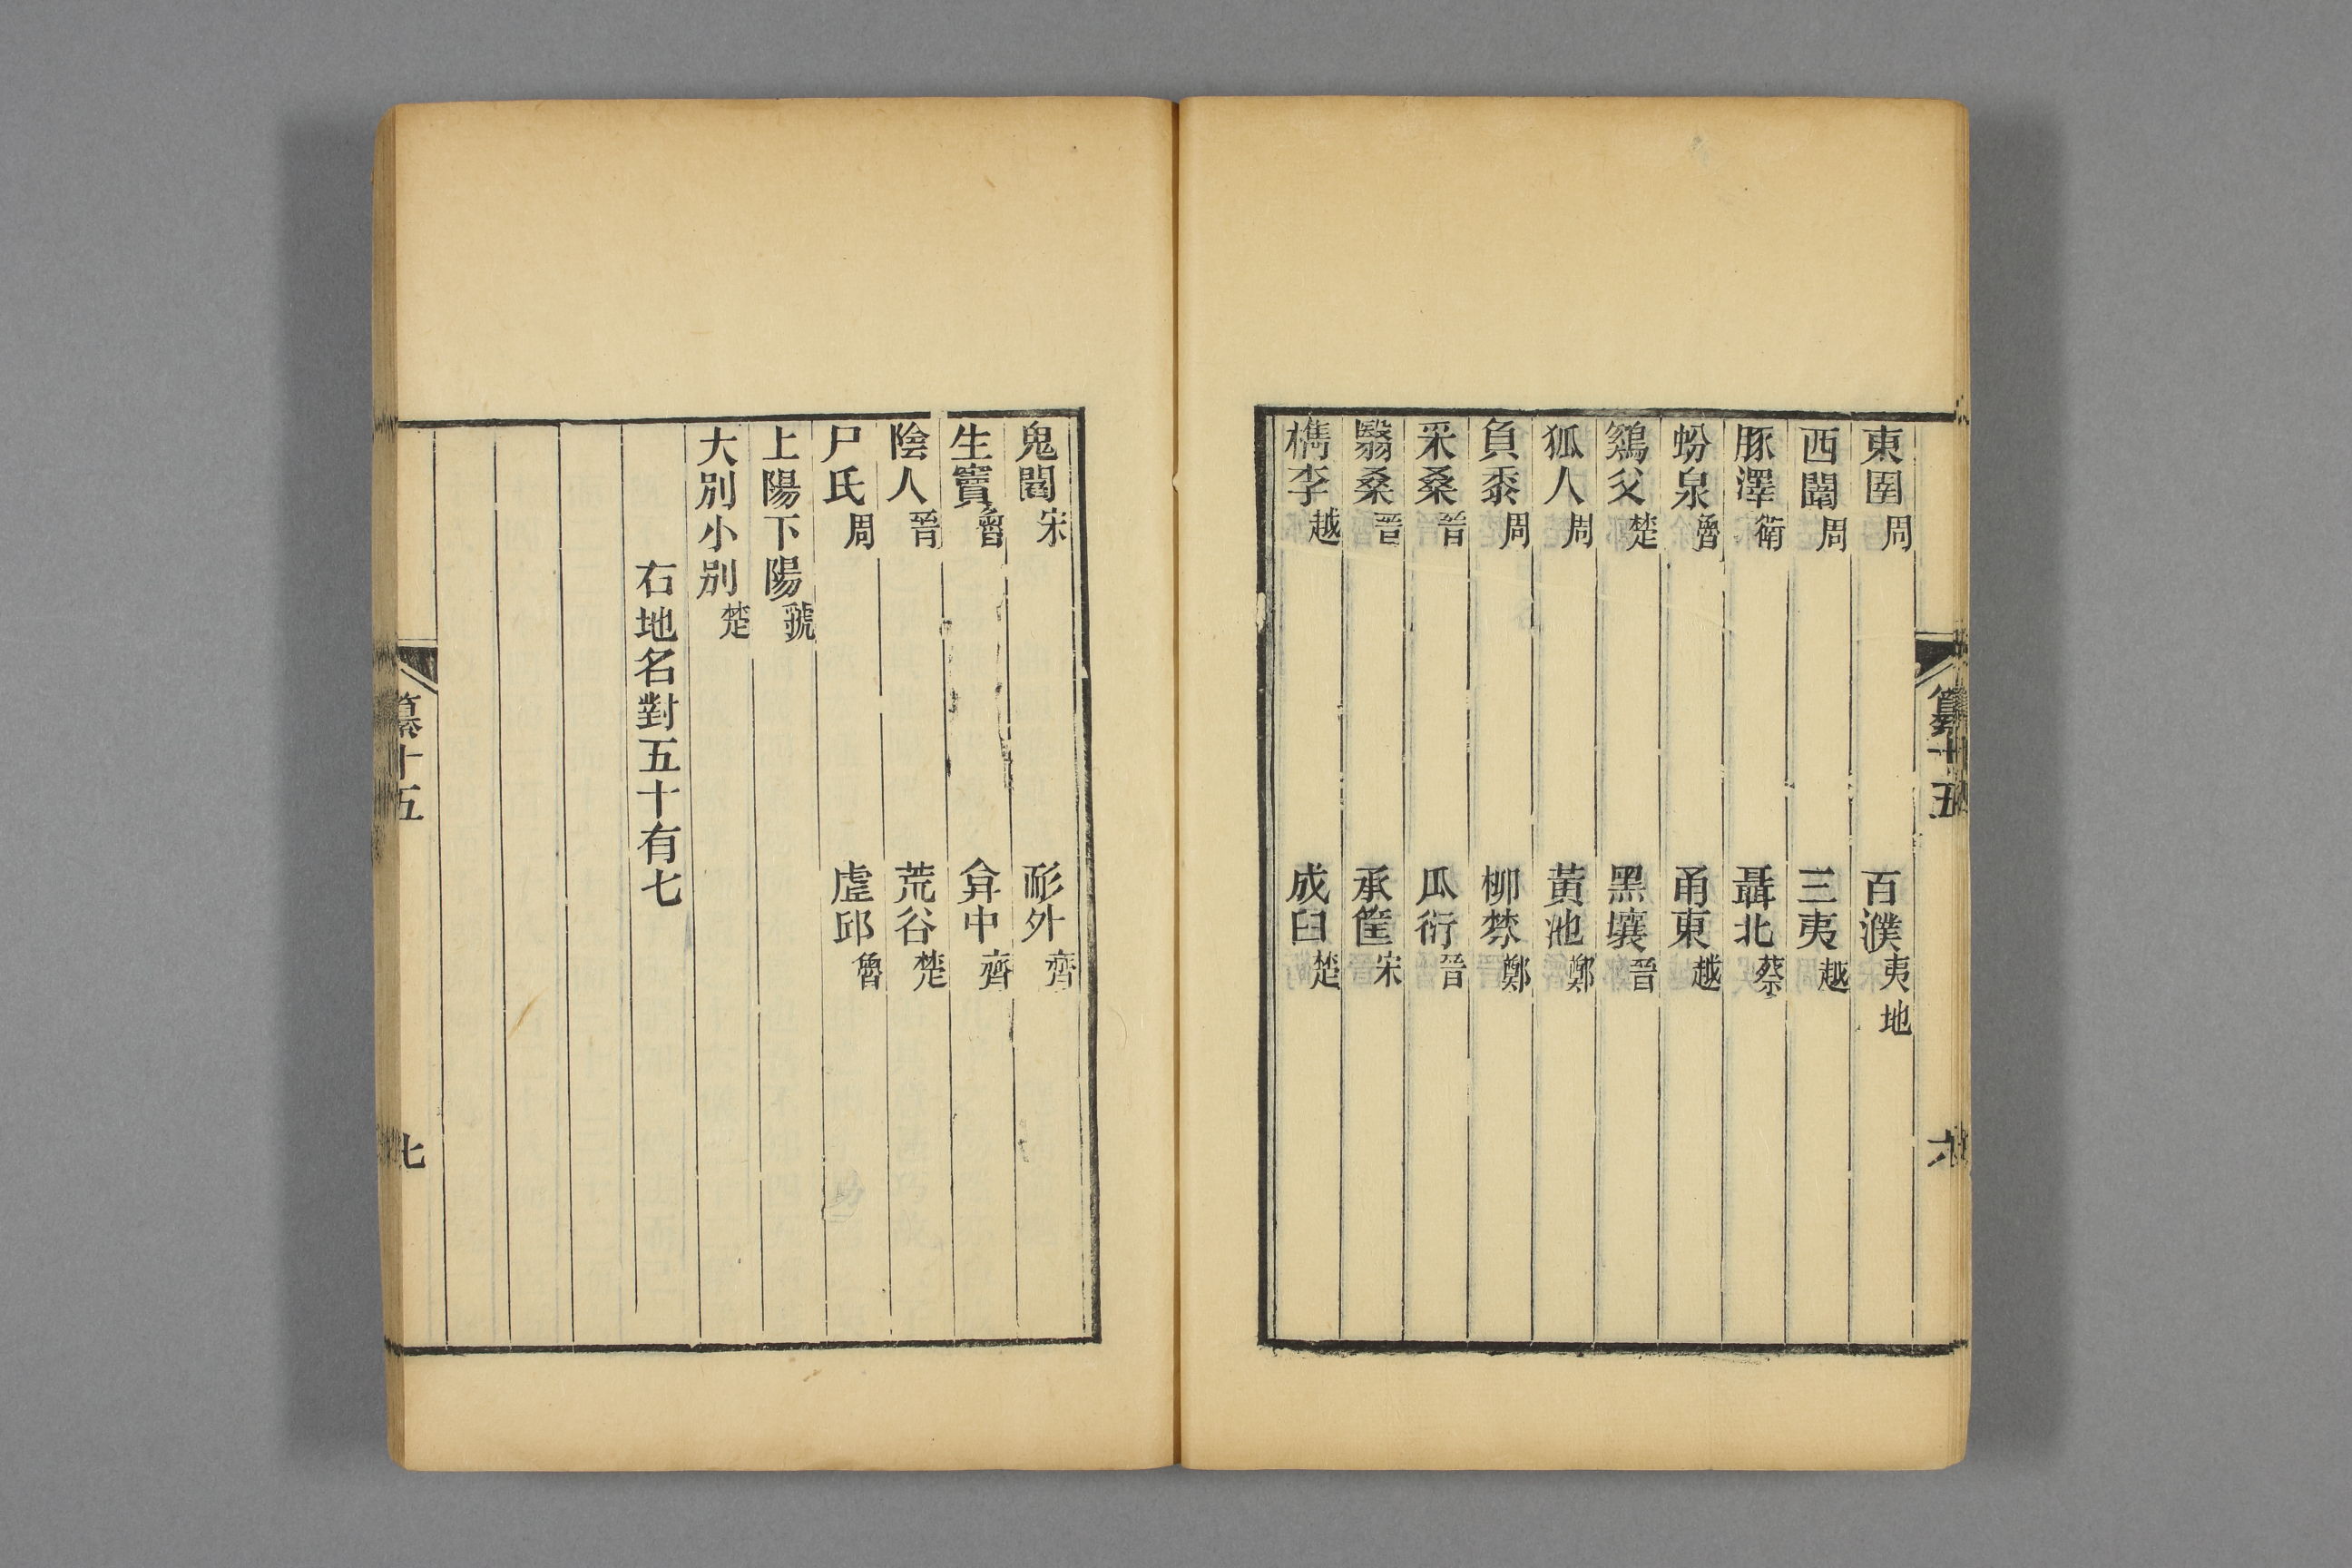 東圉周 百濮夷地
西闈周 三夷越
豚澤衛 聶北蔡
蚡泉魯 甬東越
鷄父楚 黑壤晉
狐人周 黃池鄭
負黍周 柳棼鄭
采桑晉 瓜衍晉
翳桑晉 承筐宋
檇李越 成臼楚
纂十五
六
鬼閻宋 形外齊
生竇魯 弇中齊
陰人晉 荒谷楚
尸氏周 虛邱魯
上陽下陽虢
大別小別楚
右地名對五十有七
纂十五
七